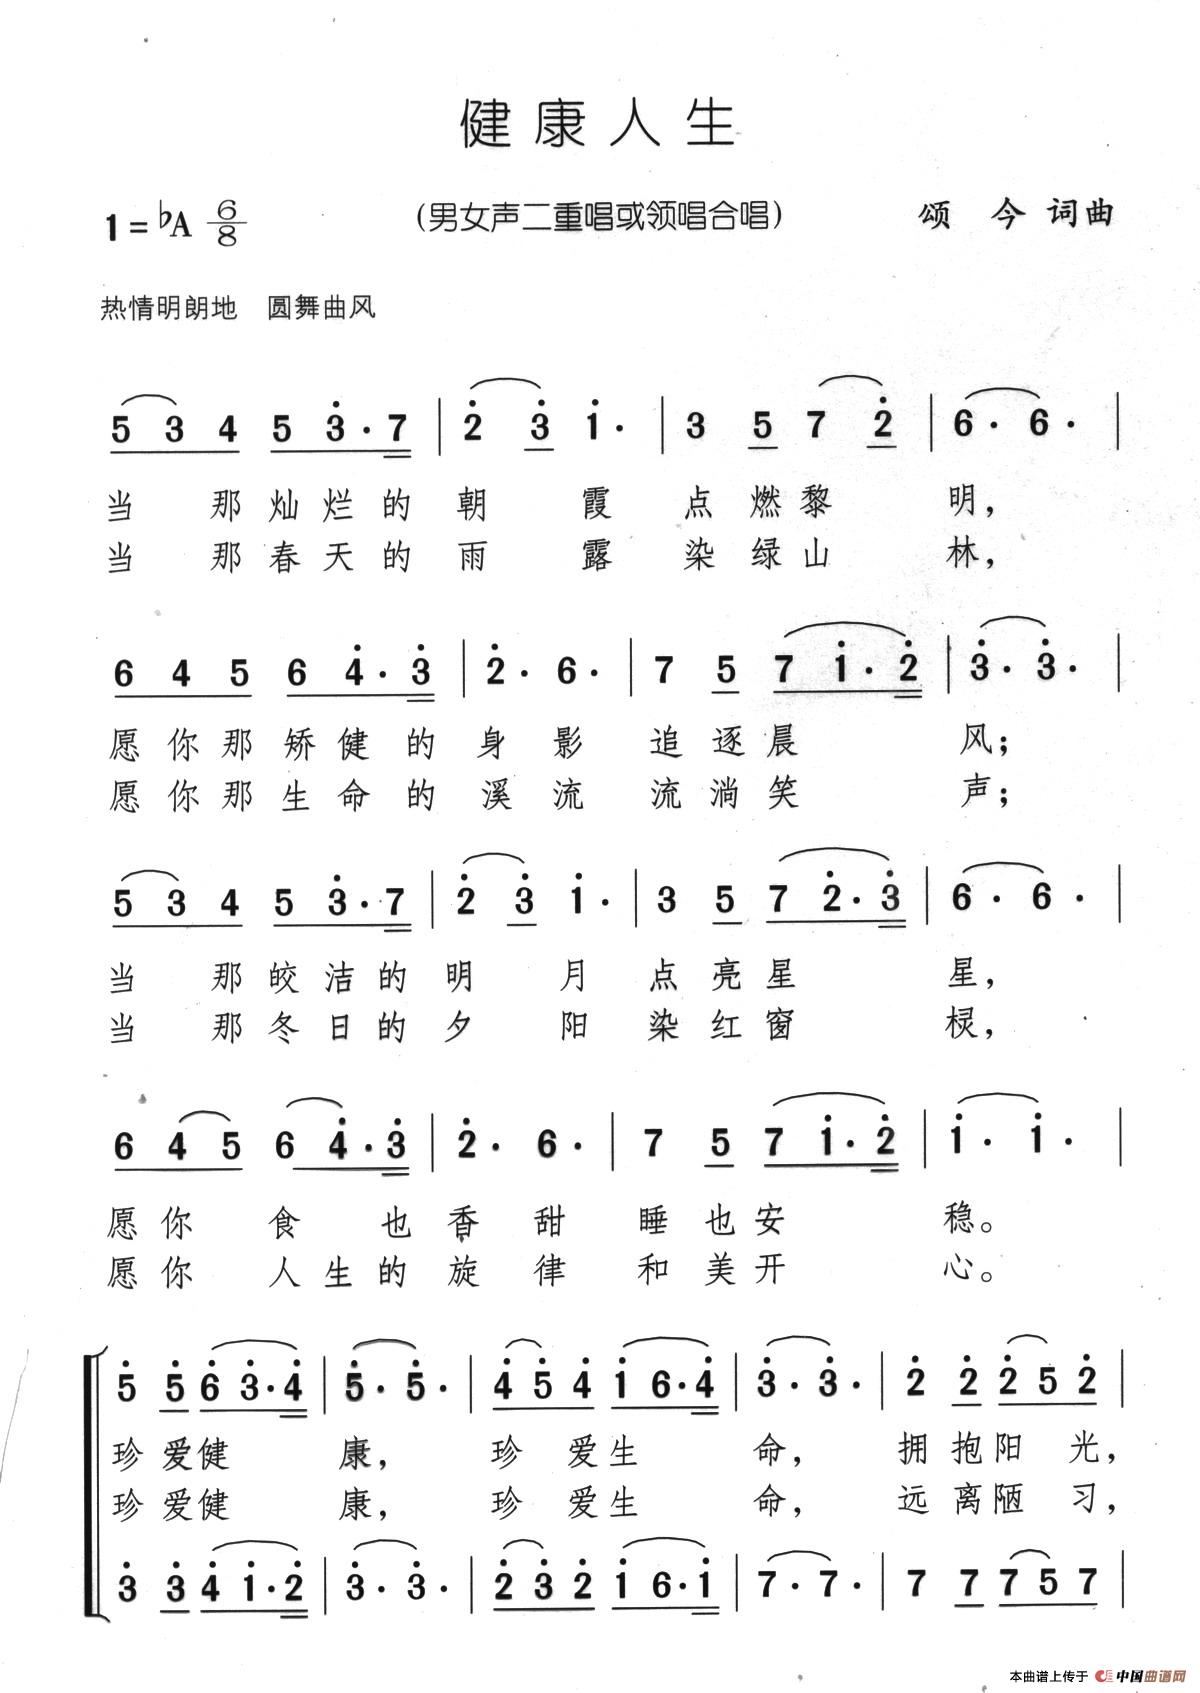 健康人生
1=♭A 6/8 (男女声二重唱或领唱合唱) 颂 今 词曲
热情明朗地 圆舞曲风
5 3 4 5 3̇· 7 | 2̇ 3̇ 1̇· | 3 5 7 2̇ | 6· 6· |
当 那灿烂的朝 霞 点燃黎 明，
当 那春天的雨 露 染绿山 林，
6 4 5 6 4̇· 3̇ | 2̇· 6· | 7 5 7 1̇· 2̇ | 3̇· 3̇· |
愿你那矫健的身影 追逐晨 风；
愿你那生命的溪流 流淌笑 声；
5 3 4 5 3̇· 7 | 2̇ 3̇ 1̇· | 3 5 7 2̇· 3̇ | 6· 6· |
当 那皎洁的明 月 点亮星 星，
当 那冬日的夕 阳 染红窗 棂，
6 4 5 6 4̇· 3̇ | 2̇· 6· | 7 5 7 1̇· 2̇ | 1̇· 1̇· |
愿你 食 也香甜 睡也安 稳。
愿你 人生的旋律 和美开 心。
5̇ 5̇ 6̇ 3̇· 4̇ | 5̇· 5̇· | 4̇ 5̇ 4̇ 1̇ 6· 4̇ | 3̇· 3̇· | 2̇ 2̇ 2̇ 5 2̇ |
珍爱健 康， 珍 爱生 命， 拥抱阳 光，
珍爱健 康， 珍 爱生 命， 远离陋 习，
3̇ 3̇ 4̇ 1̇· 2̇ | 3̇· 3̇· | 2̇ 3̇ 2̇ 1̇ 6· 1̇ | 7· 7· | 7 7 7 5 7 |
本曲谱上传于 中国曲谱网